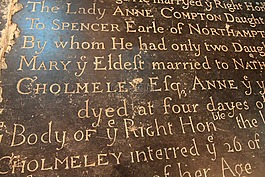 married ẏ Right Ha
The Lady ANNE COMPTON Daught
To SPENCER Earle of NORTHAMPT
By whom He had only two Daug
Mary ẏ Eldest married to NATH
CHOLMELEY Esqr, ANNE ẏ y
dyed at four dayes o
Body of ẏ Right Honble the l
CHOLMELEY interred ẏ 26 of
of her Age